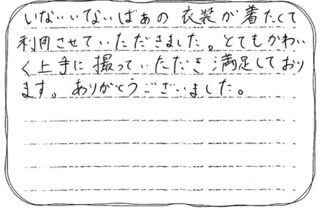 いないいないばぁの 衣装が着たくて
利用させていただきました。とてもかわい
く上手に撮っていただき満足しており
ます。ありがとうございました。